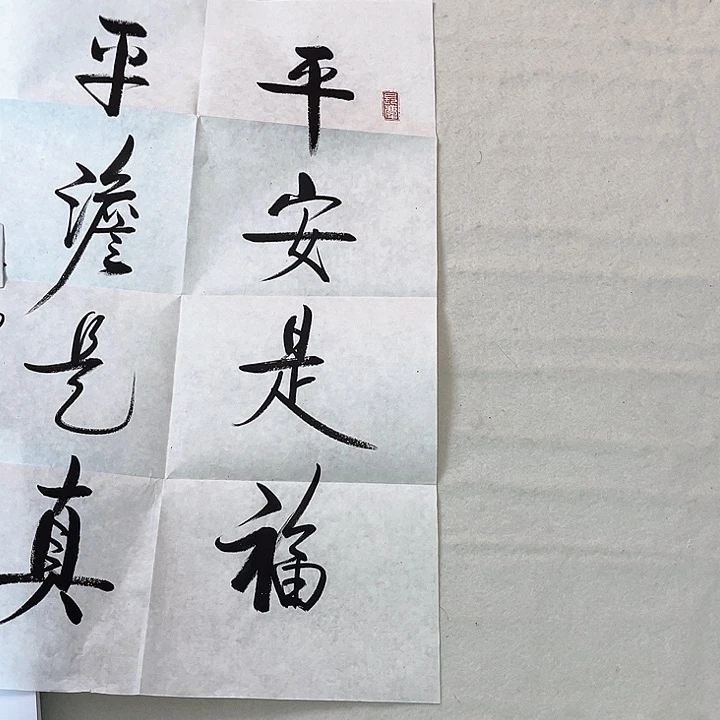 平安是福
平澹是真